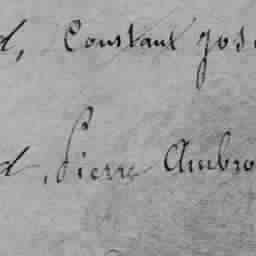 d, Constant Jos
d, Pierre Ambro